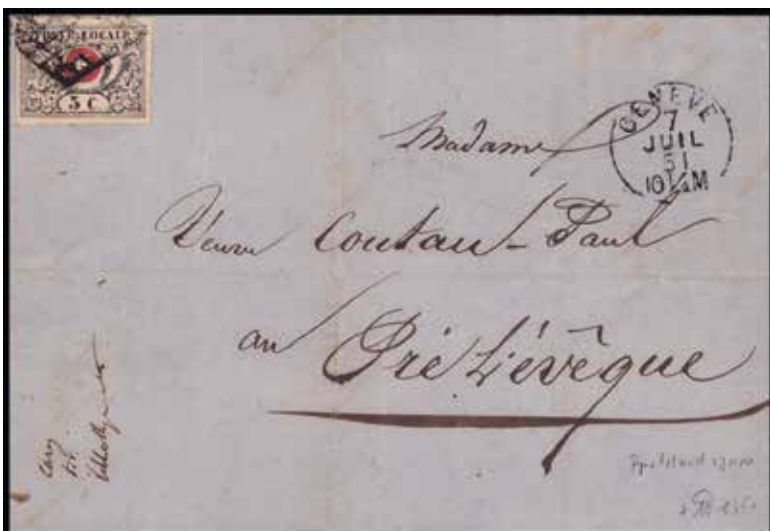 POSTE LOCALE
5 C
GENÈVE
7
JUIL
51
10 ¼ M
Madame
Veuve Coutau-Paul
au Pré L'évêque